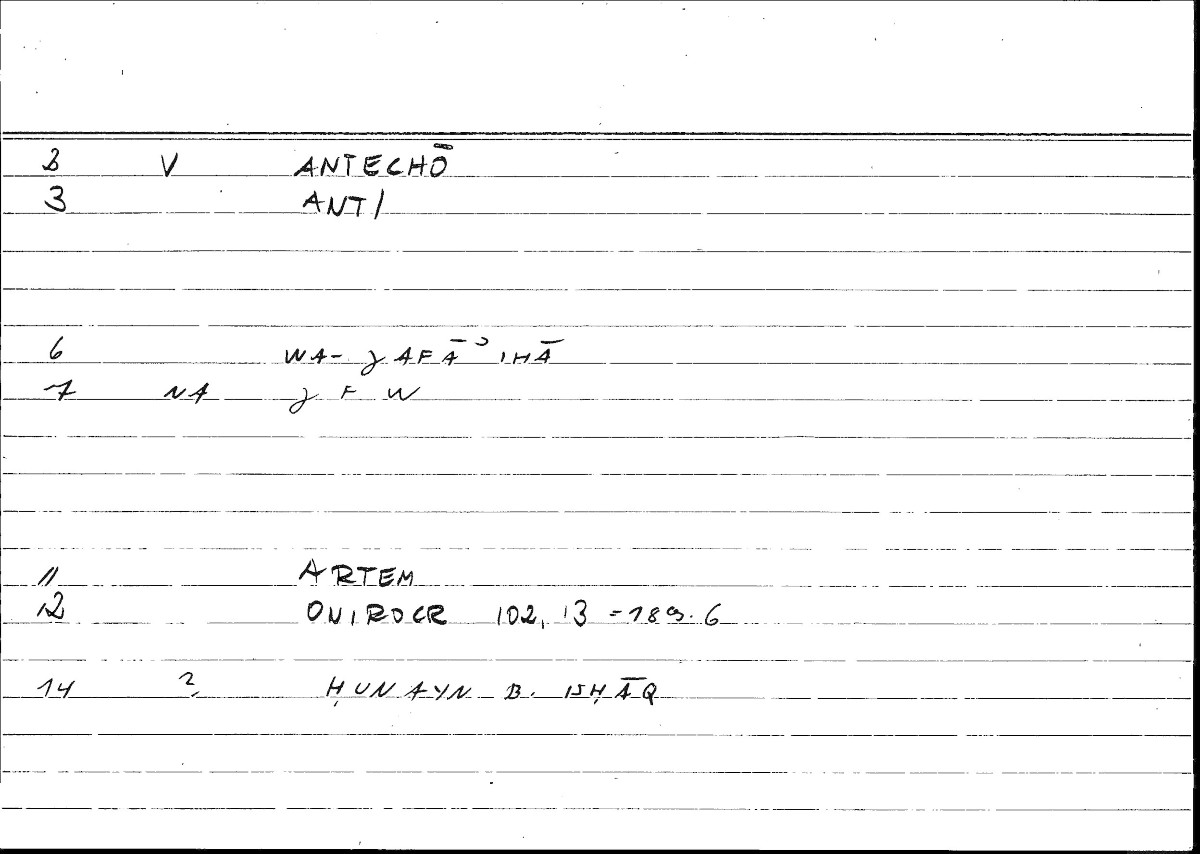 2 V ANTECHŌ
3 ANTI
6 WA- ȷAFĀʾIHĀ
7 NA ȷ F W
11 ARTEM
12 ONIROCR 102, 13 = 189. 6
14 ? ḤUNAYN B. ISḤĀQ